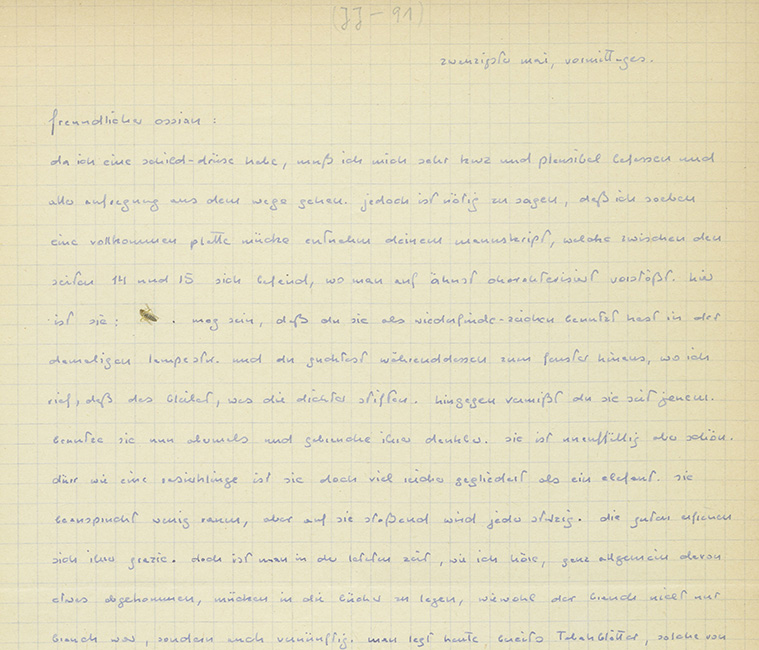 (JJ-91)
zwanzigster mai, vormittages.
freundlicher ossian:
da ich eine schild-drüse habe, muß ich mich sehr kurz und plausibel befassen und
aller aufregung aus dem wege gehen. jedoch ist nötig zu sagen, daß ich soeben
eine vollkommen platte mücke entnahm deinem manuskript, welche zwischen den
seiten 14 und 15 sich befand, wo man auf ähnst charakterisiert vorstößt. hier
ist sie: . mag sein, daß du sie als wiederfinde-zeichen benutzt hast in der
damaligen tempestr. und du gucktest währenddessen zum fenster hinaus, wo ich
rief, daß das bleibet, was die dichter stiften. hingegen vermißt du sie seit jenem.
benutze sie nun abermals und gebrauche ihrer dankbar. sie ist unauffällig aber schön.
dürr wie eine ist sie doch viel reicher gegliedert als ein elefant. sie
beansprucht wenig raum, aber auf sie stoßend wird jeder stutzig. die guten erfreuen
sich ihrer grazie. doch ist man in der letzten zeit, wie ich höre, ganz allgemein davon
etwas abgekommen, mücken in die bücher zu legen, wiewohl der brauch nicht nur
brauch war, sondern auch vernünftig. man legt heute bereits Tabakblätter, solche von